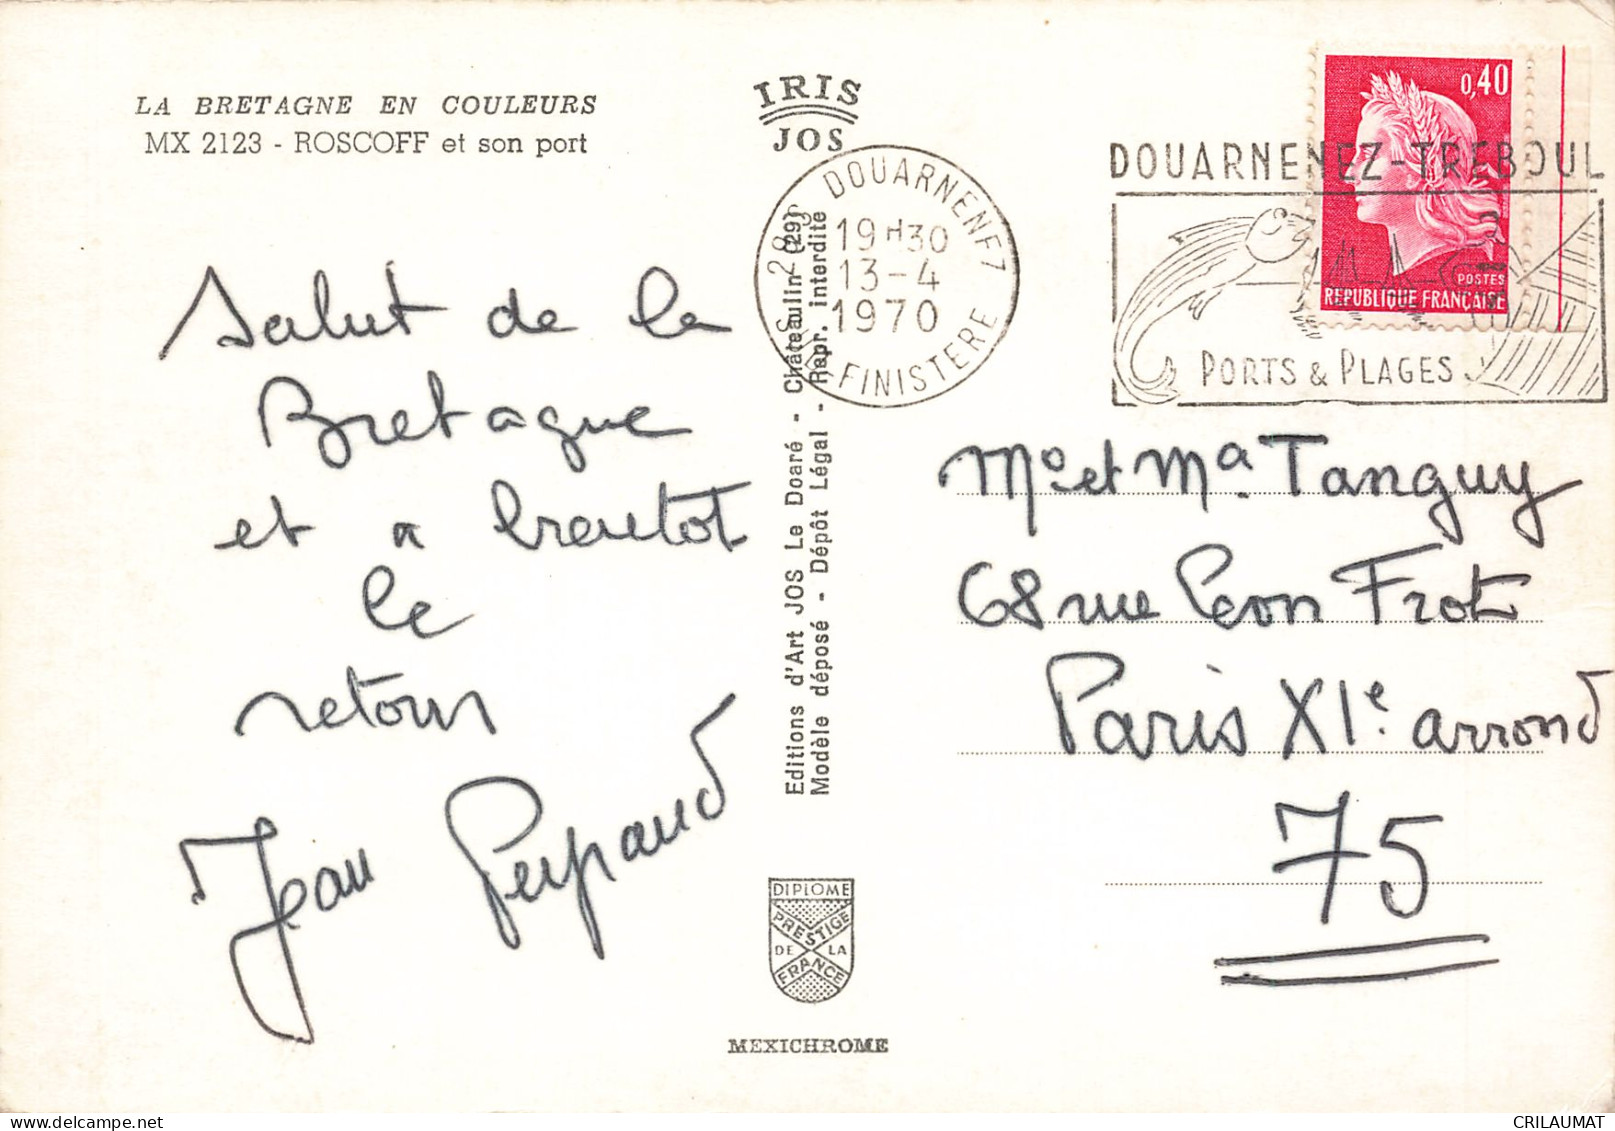 LA BRETAGNE EN COULEURS
MX 2123 - ROSCOFF et son port
IRIS
JOS
DOUARNENEZ
19H30
13-4
1970
FINISTERE
DOUARNENEZ-TREBOUL
PORTS & PLAGES
0,40
POSTES
REPUBLIQUE FRANÇAISE
Salut de la
Bretagne
et a bientot
le
retour
Jean
Editions d'Art JOS Le Doaré - Châteaulin (29)
Modèle déposé - Dépôt Légal - Repr. interdite
Mo et Ma Tanguy
68 rue Leon Frot
Paris XIe arrond
75
DIPLOME
PRESTIGE
DE LA
FRANCE
MEXICHROME
CRILAUMAT